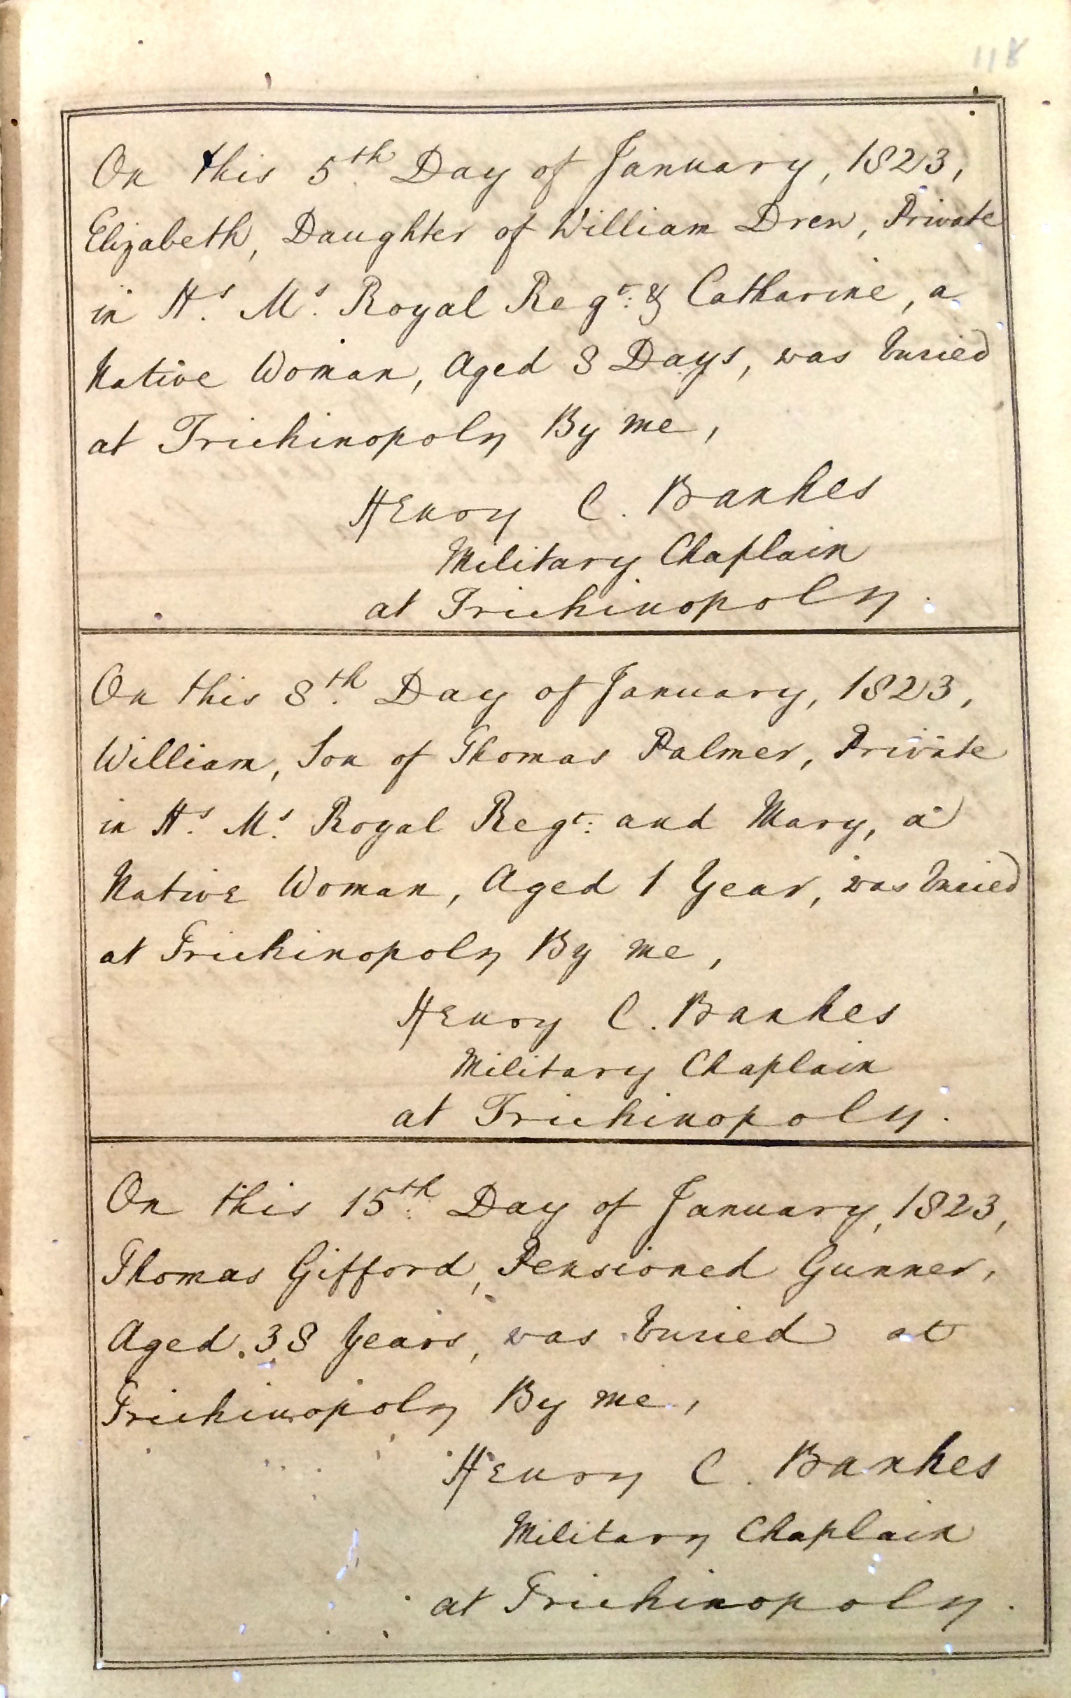 118
On this 5th Day of January, 1823,
Elizabeth, Daughter of William Drew, Private
in Hs. Ms. Royal Regt: & Catharine, a
Native Woman, Aged 8 Days, was buried
at Trichinopoly By me,
Henry C. Bankes
Military Chaplain
at Trichinopoly.
On this 8th Day of January, 1823,
William, Son of Thomas Palmer, Private
in Hs. Ms. Royal Regt: and Mary, a
Native Woman, Aged 1 Year, was buried
at Trichinopoly By me,
Henry C. Bankes
Military Chaplain
at Trichinopoly.
On this 15th Day of January, 1823,
Thomas Gifford, Pensioned Gunner,
Aged 38 Years, was buried at
Trichinopoly By me,
Henry C. Bankes
Military Chaplain
at Trichinopoly.